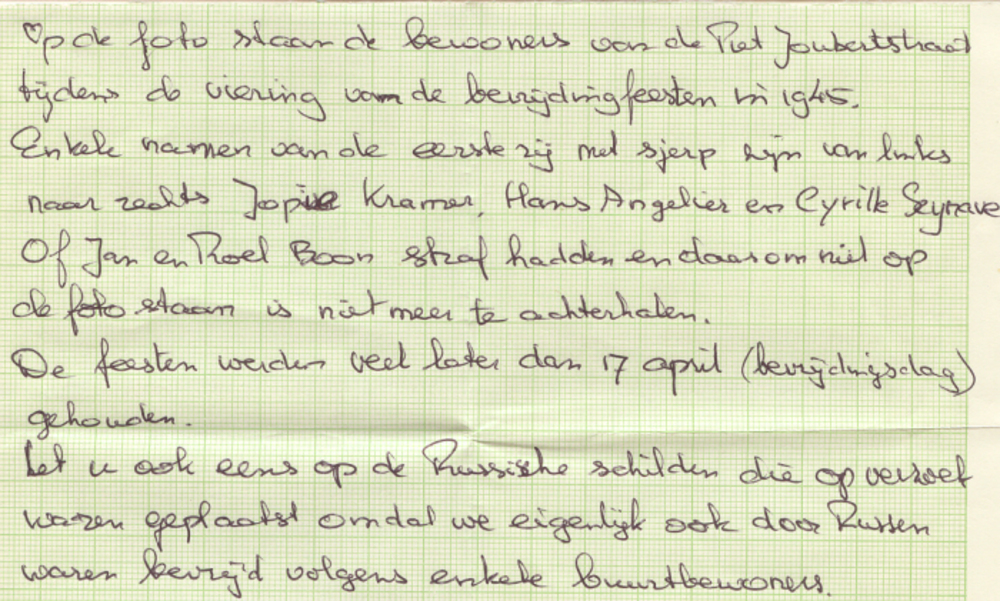 Op de foto staan de bewoners van de Piet Joubertstraat
tijdens de viering van de bevrijdingfeesten in 1945.
Enkele namen van de eerste rij met sjerp zijn van links
naar rechts Jopie Kramer, Hans Angelier en Cyrille Seynave
Of Jan en Roel Boon straf hadden en daarom niet op
de foto staan is niet meer te achterhalen.
De feesten werden veel later dan 17 april (bevrijdingsdag)
gehouden.
Let u ook eens op de Russische schilden die op verzoek
waren geplaatst omdat we eigenlijk ook door Russen
waren bevrijd volgens enkele buurtbewoners.